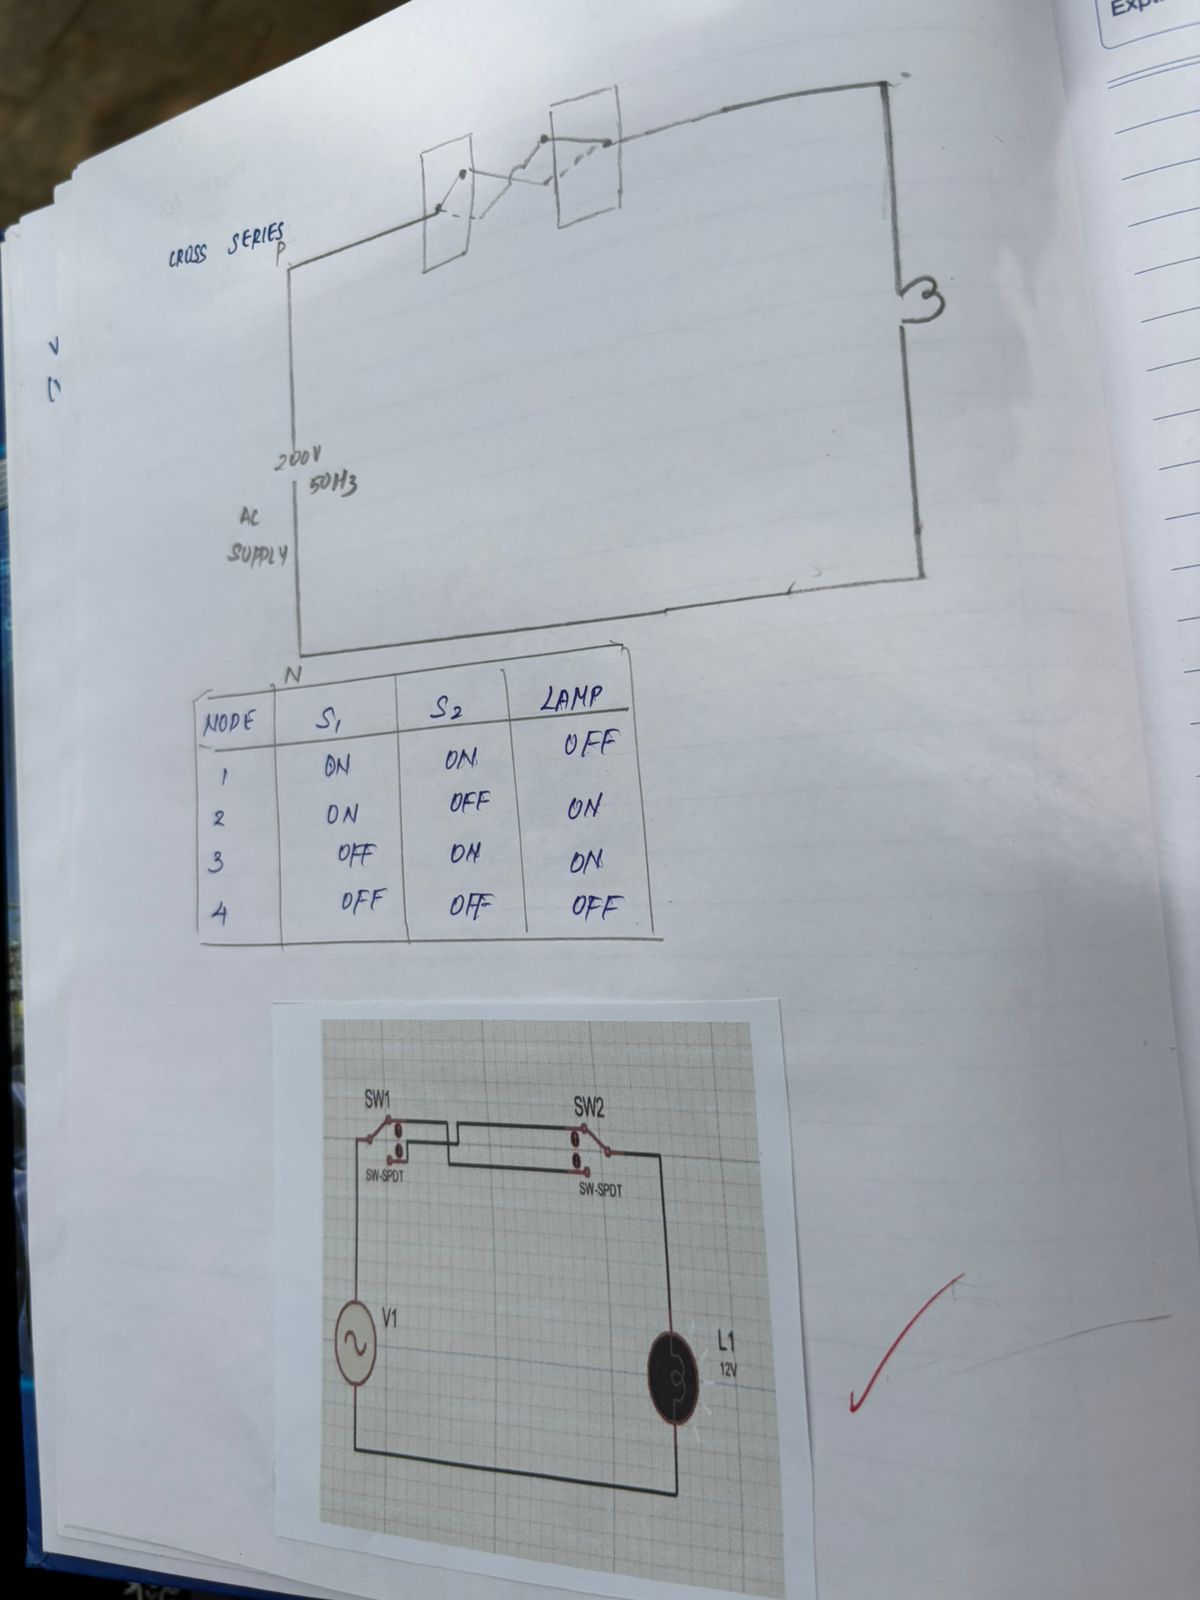 Exp
CROSS SERIES
P
200V
50Hz
AC
SUPPLY
N
MODE S1 S2 LAMP
1 ON ON OFF
2 ON OFF ON
3 OFF ON ON
4 OFF OFF OFF
SW1 SW2
SW-SPDT SW-SPDT
V1
L1
12V